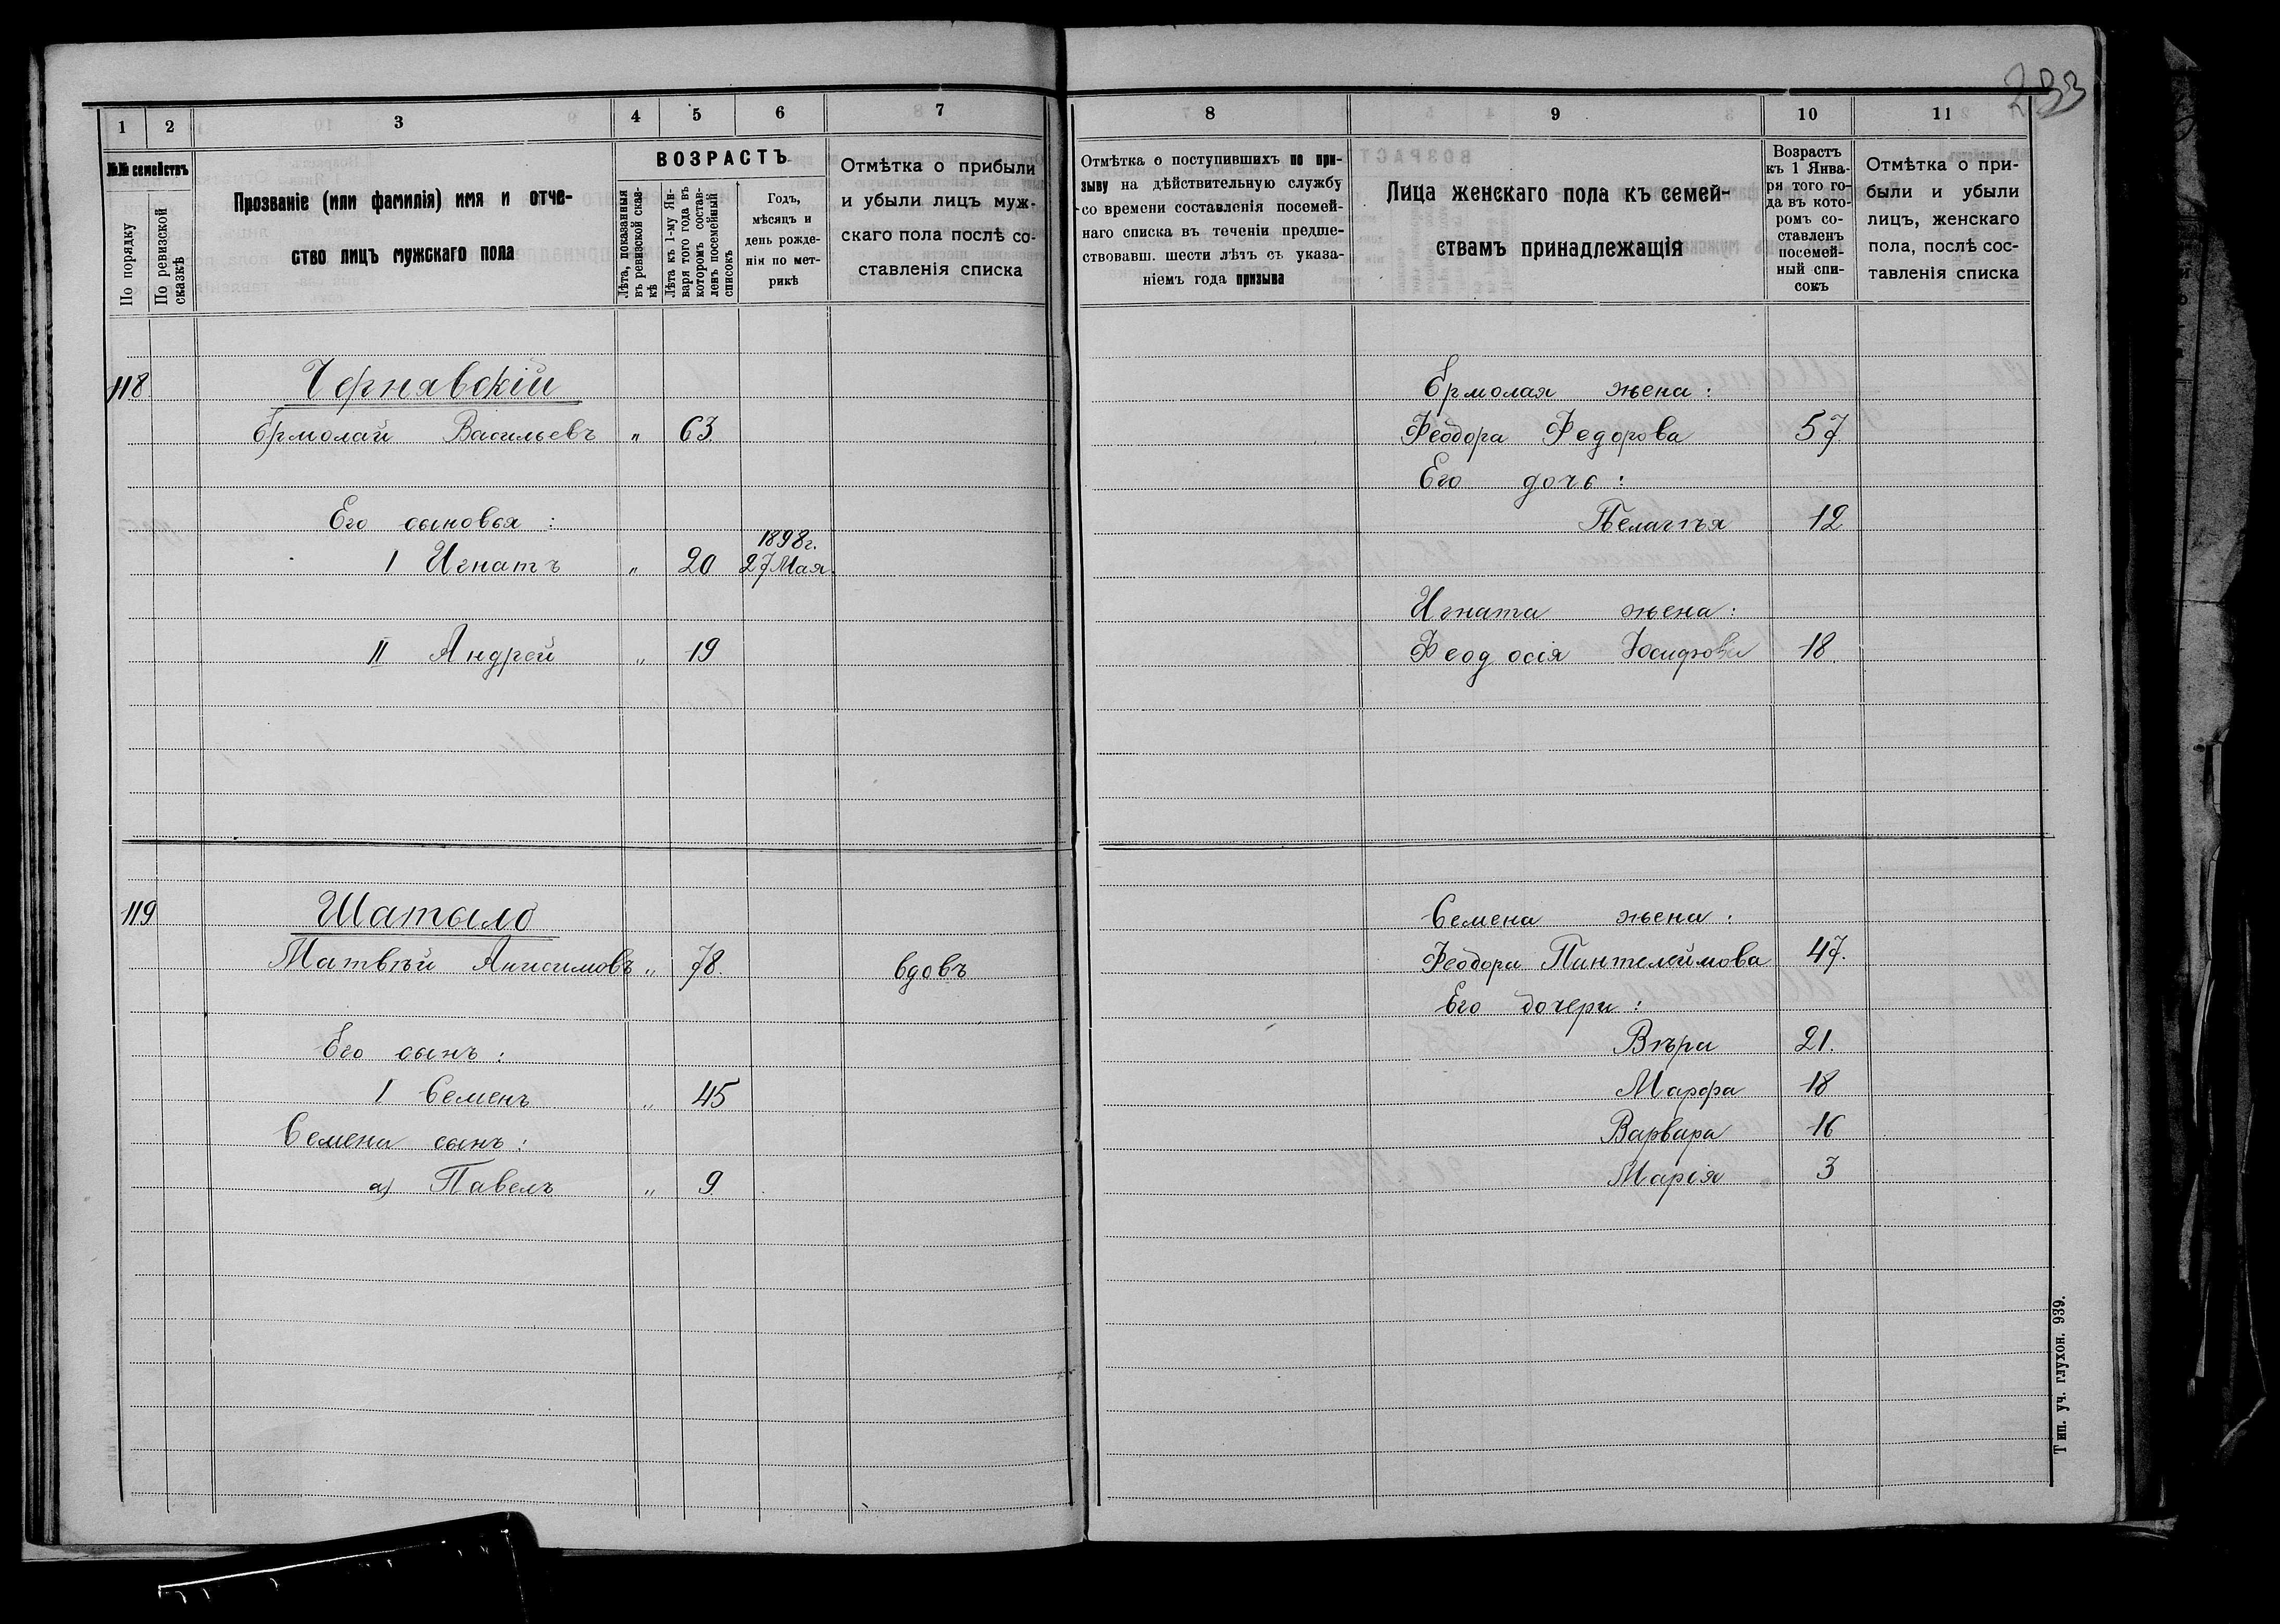 233
1 2 3 4 5 6 7
№№ семействъ
По порядку
По ревизской сказкѣ
Прозваніе (или фамилія) имя и отче-
ство лицъ мужскаго пола
ВОЗРАСТЪ
Лѣта, показанныя
въ ревизской сказ-
кѣ
Лѣта къ 1-му Ян-
варя того года въ
которомъ состав-
ленъ посемейный
списокъ
Годъ,
мѣсяцъ и
день рожде-
нія по мет-
рикѣ
Отмѣтка о прибыли
и убыли лицъ муж-
скаго пола послѣ со-
ставленія списка
118 Чернявскій
Ермолай Васильевъ " 63
Его сыновья:
1898г.
I Игнатъ " 20 27 Мая.
II Андрей " 19
119 Шатыло
Матвѣй Анисимовъ " 78. вдовъ
Его сынъ:
I Семенъ " 45
Семена сынъ:
а) Павелъ " 9.
8 9 10 11
Отмѣтка о поступившихъ по при-
зыву на дѣйствительную службу
со времени составленія посемей-
наго списка въ теченіи предше-
ствовавш. шести лѣтъ съ указа-
ніемъ года призыва
Лица женскаго пола къ семей-
ствамъ принадлежащія
Возрастъ
къ 1 Янва-
ря того го-
да въ кото-
ромъ со-
ставленъ
посемей-
ный спи-
сокъ
Отмѣтка о при-
были и убыли
лицъ, женскаго
пола, послѣ сос-
тавленія списка
Ермолая жена:
Феодора Федорова 57
Его дочь:
Пелагѣя 12
Игната жена:
Феодосія 18.
Семена жена:
Феодора Пантелеймова 47.
Его дочери:
Вѣра 21.
Марфа 18
Варвара 16
Марія 3
Тип. уч. глухон. 939.